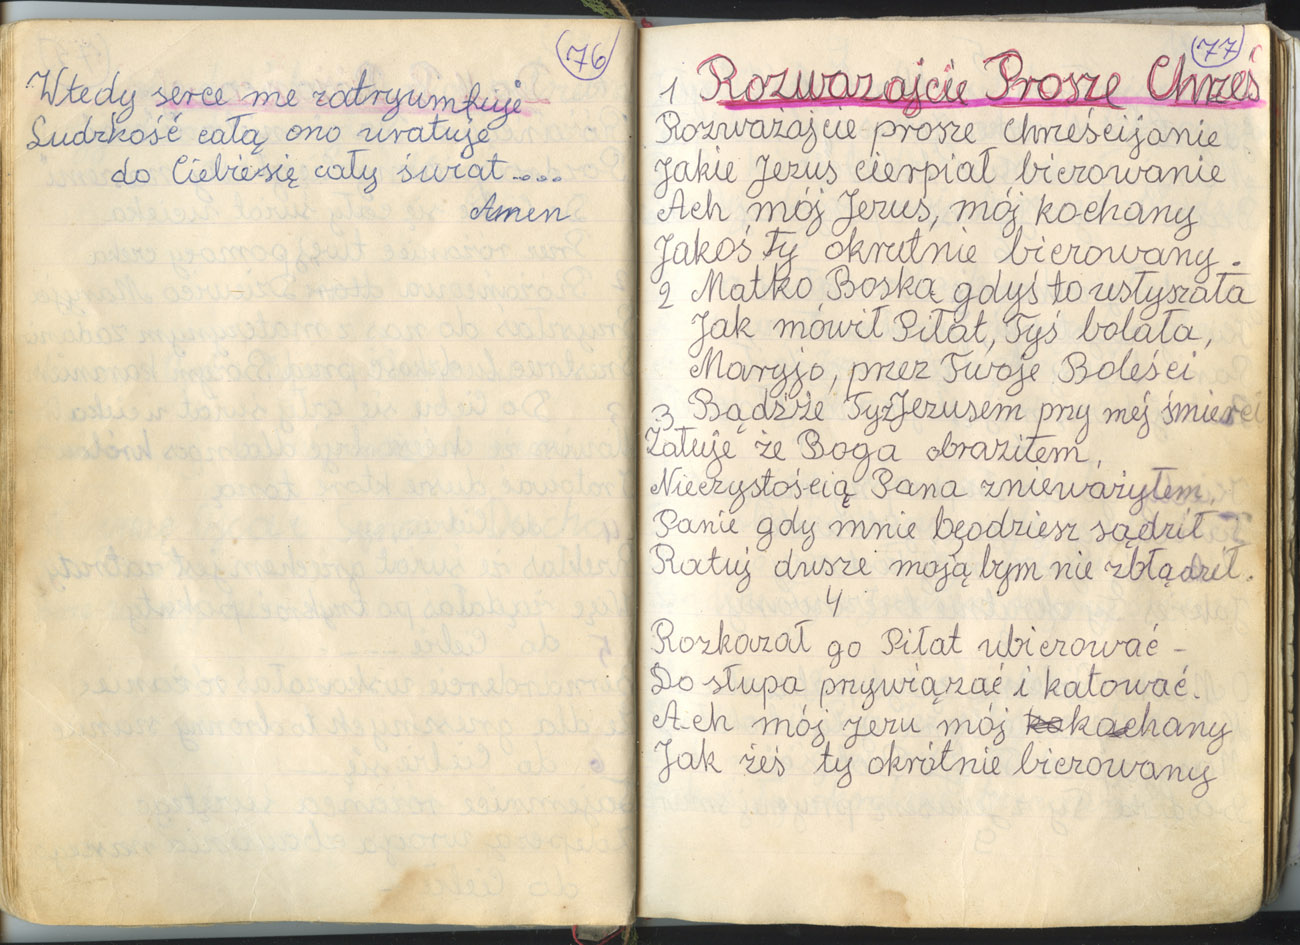 76
Wtedy serce me zatryumfuje
Ludzkość całą ono uratuje
do Ciebie się cały świat....
Amen
77
1 Rozwazajcie Prosze Chrześ
Rozwazajcie prosze Chrześcijanie
Jakie Jezus cierpiał biczowanie
Ach mój Jezus, mój kochany
Jakoś Ty okrutnie biczowany.
2 Matko Boska gdyś to usłyszała
Jak mowił Piłat, Tyś bolała,
Maryjo, przez Twoje Boleści
3 Bądźże Tyż Jezusem przy mej śmierci
Załuje że Boga obraziłem,
Nieczystością Pana znieważyłem,
Panie gdy mnie będziesz sądził
Ratuj dusze moją bym nie zbłądził.
4
Rozkazał go Piłat ubiczować -
Do słupa przywiązać i katować.
Ach mój jezu mój kochany
Jak żeś ty okrótnie biczowany